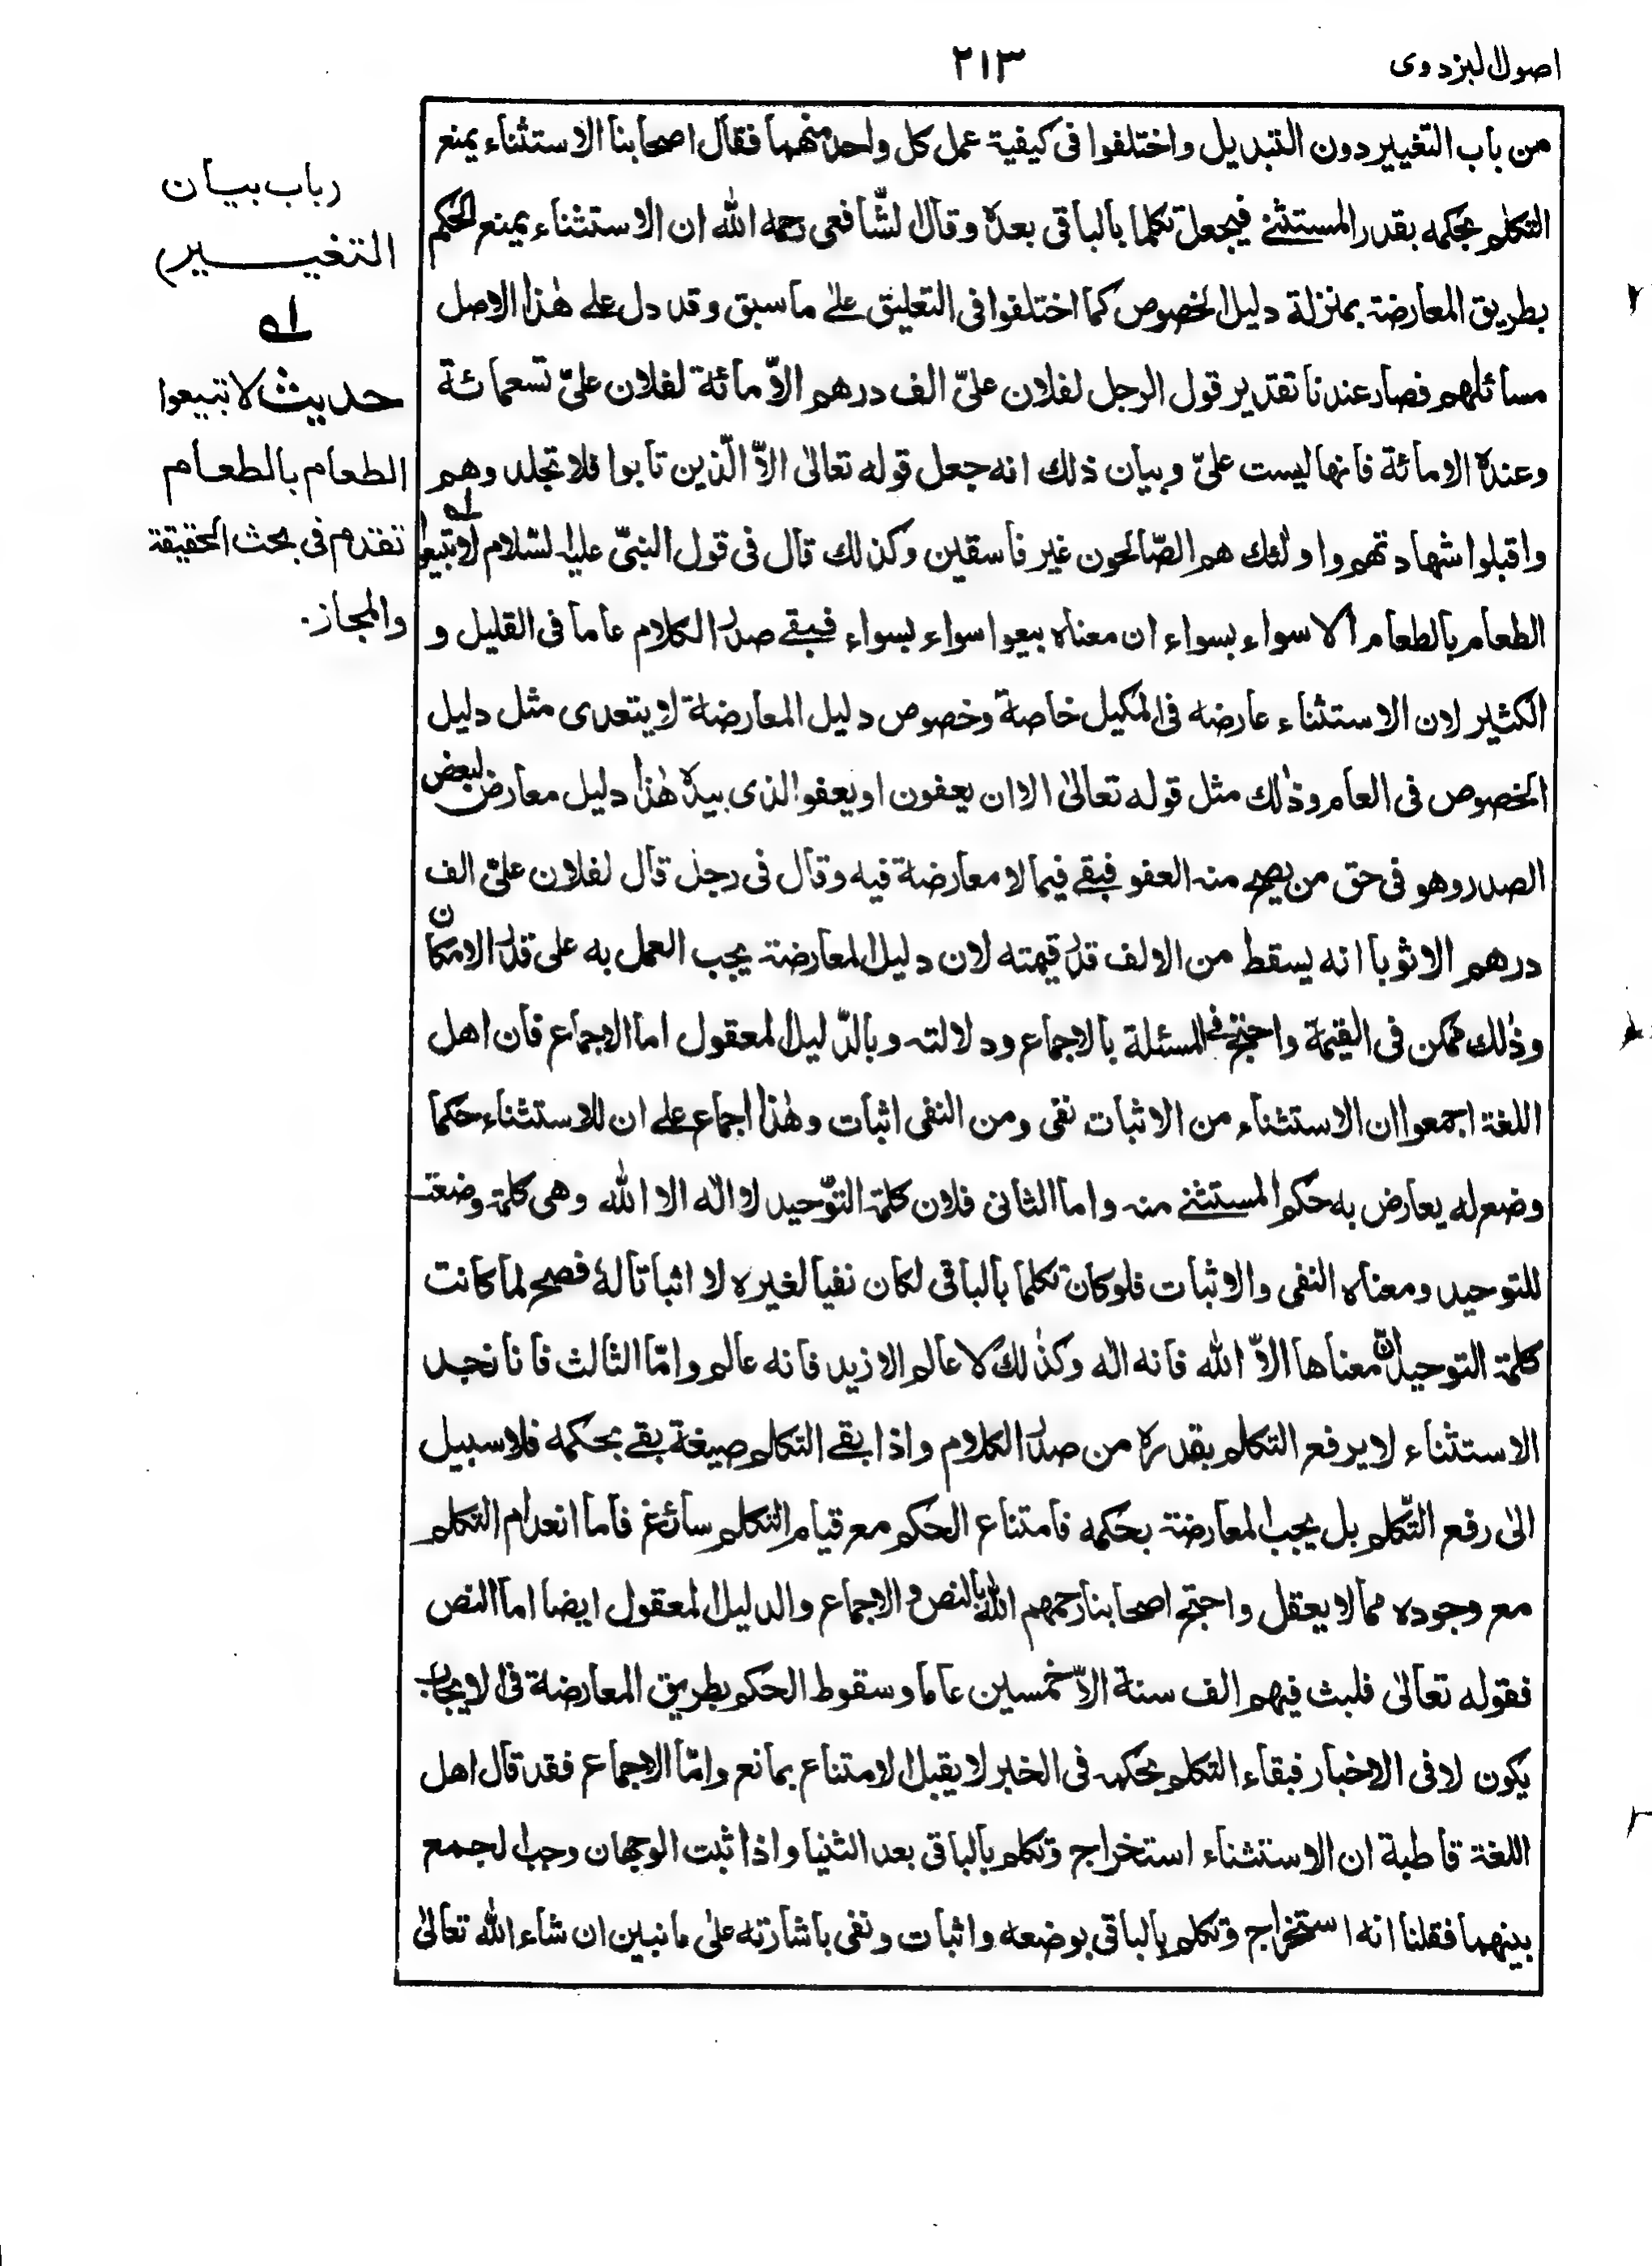 اصول البزدوى
٢١٣
من باب التغيير دون التبديل واختلفوا فى كيفية عمل كل واحد منهما فقال اصحابنا الاستثناء يمنع
التكلم بحكمه بقدر المستثنے فيجعل تكلما بالباقى بعدہ وقال الشّافعى رحمه الله ان الاستثناء يمنع الحكم
بطريق المعارضة بمنزلة دليل الخصوص كما اختلفوا فى التعليق علےٰ ما سبق وقد دل علے هٰذا الاصل
مسائلهم فصار عندنا تقدير قول الرجل لفلان علىّ الف درهم الاّ مائة لفلان علىّ تسعمائة
وعندہ الا مائة فانها ليست علىّ وبيان ذلك انه جعل قوله تعالىٰ الاّ الّذين تابوا فلا تجلدوهم
واقبلوا شهادتهم واولئك هم الصّالحون غير فاسقين وكذلك قال فى قول النبىّ عليه السّلام لا تبيعوا
الطعام بالطعام الا سواء بسواء ان معناه بيعوا سواء بسواء فبقے صدر الكلام عاما فى القليل و
الكثير لان الاستثناء عارضه فى المكيل خاصة وخصوص دليل المعارضة لا يتعدى مثل دليل
الخصوص فى العام وذٰلك مثل قوله تعالىٰ الا ان يعفون او يعفو الذى بيدہ هٰذا دليل معارض لبعض
الصدر وهو فى حق من يصح منه العفو فبقے فيما لا معارضة فيه وقال فى رجل قال لفلان علىّ الف
درهم الا ثوبا انه يسقط من الالف قدر قيمته لان دليل المعارضة يجب العمل به على قدر الامكان
وذٰلك ممكن فى القيمة واحتج فے المسئلة بالاجماع ودلالته وبالدّليل المعقول اما الاجماع فان اهل
اللغة اجمعوا ان الاستثناء من الاثبات نفى ومن النفى اثبات وهٰذا اجماع علے ان للاستثناء حكما
وضع له يعارض به حكم المستثنے منه واما الثانى فلان كلمة التوّحيد لا الٰه الا الله وهى كلمة وضعت
للتوحيد ومعناه النفى والاثبات فلو كان تكلما بالباقى لكان نفيا لغيره لا اثباتا لهٗ فصح لما كانت
كلمة التوحيد انّ معناها الاّ الله فانه الٰه وكذٰلك لا عالم الا زيد فانه عالم وامّا الثالث فانا نجد
الاستثناء لا يرفع التكلم بقدره من صدر الكلام واذا بقے التكلم صيغة بقے بحكمه فلا سبيل
الىٰ رفع التّكلم بل يجب المعارضة بحكمه فامتناع الحكم مع قيام التكلم سائغ فاما انعدام التكلم
مع وجوده مما لا يعقل واحتج اصحابنا رحمهم الله بالنص و الاجماع والدليل المعقول ايضا اما النص
فقوله تعالىٰ فلبث فيهم الف سنة الاّ خمسين عاما وسقوط الحكم بطريق المعارضة فى الايجاب
يكون لا فى الاخبار فبقاء التكلم بحكمه فى الخبر لا يقبل الامتناع بمانع وامّا الاجماع فقد قال اهل
اللغة قاطبة ان الاستثناء استخراج وتكلم بالباقى بعد الثنيا واذا ثبت الوجهان وجب الجمع
بينهما فقلنا انه استخراج وتكلم بالباقى بوضعه واثبات ونفى باشارته علىٰ ما نبين ان شاء الله تعالىٰ
(باب بيان
التغيير)
له
حديث لا تبيعوا
الطعام بالطعام
تقدم فى بحث الحقيقة
والمجاز.